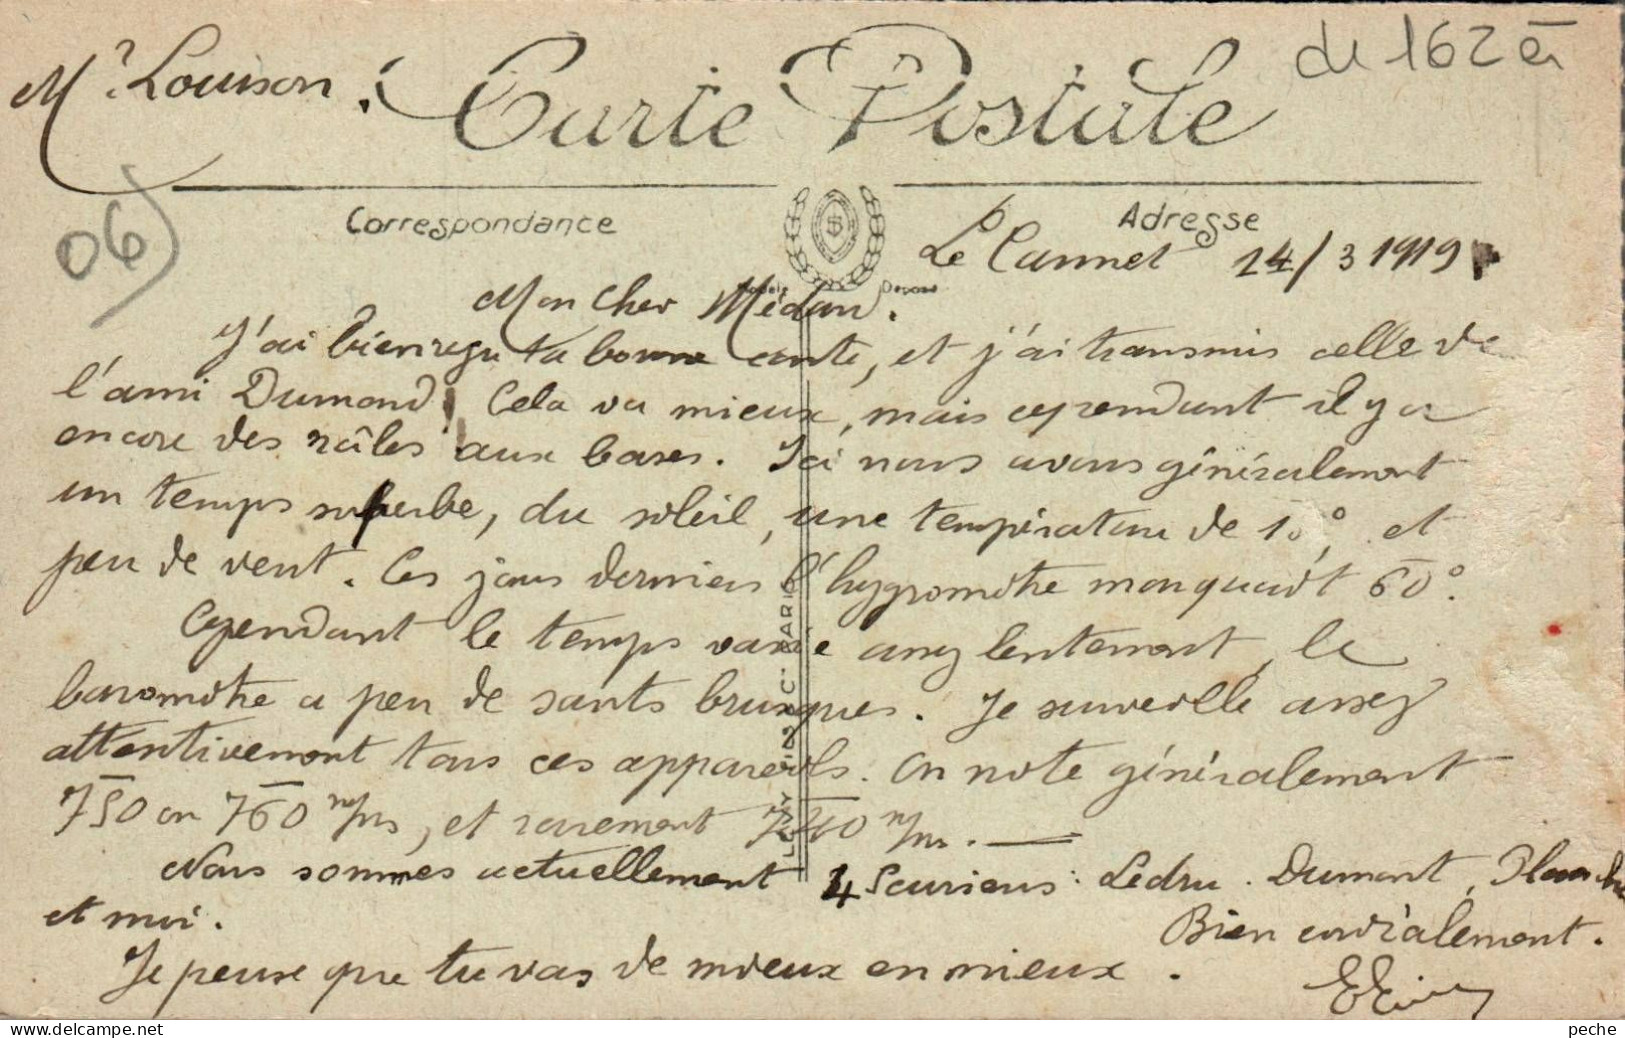 Mr Louison.
Carte Postale
de 162 
06)
Correspondance
Adresse
Le Cannet 14/3 1919
Modèle Déposé
Mon cher Médan.
J'ai bien reçu ta bonne carte, et j'ai transmis celle de
l'ami Dumond. Cela va mieux, mais cependant il y a
encore des râles aux bases. Ici nous avons généralement
un temps superbe, du soleil, une température de 18°, et
peu de vent. Ces jours derniers l'hygromètre marquait 60°.
Cependant le temps varie assez lentement, le
baromètre a peu de sauts brusques. Je surveille assez
attentivement tous ces appareils. On note généralement
750 ou 760 m/m, et rarement 740 m/m.
Nous sommes actuellement 4 Scuriens: Ledru. Dumont, Planche
et moi.
Bien cordialement.
Je pense que tu vas de mieux en mieux.
LEVY FILS & Cie PARIS
peche